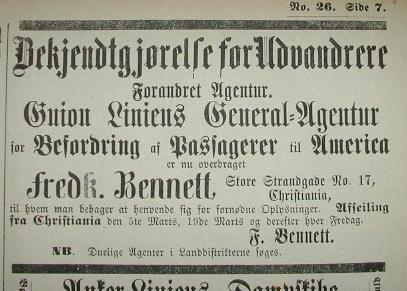 No. 26. Side 7.
Bekjendtgjørelse for Udvandrere
Forandret Agentur.
Guion Liniens General-Agentur
for Befordring af Passagerer til America
er nu overdraget
Fredk. Bennett, Store Strandgade No. 17,
Christiania,
til hvem man behager at henvende sig for fornødne Oplysninger. Afseiling
fra Christiania den 5te Marts, 19de Marts og derefter hver Fredag.
F. Bennett.
NB. Duelige Agenter i Landdistrikterne søges.
Anker Liniens Dampskibe